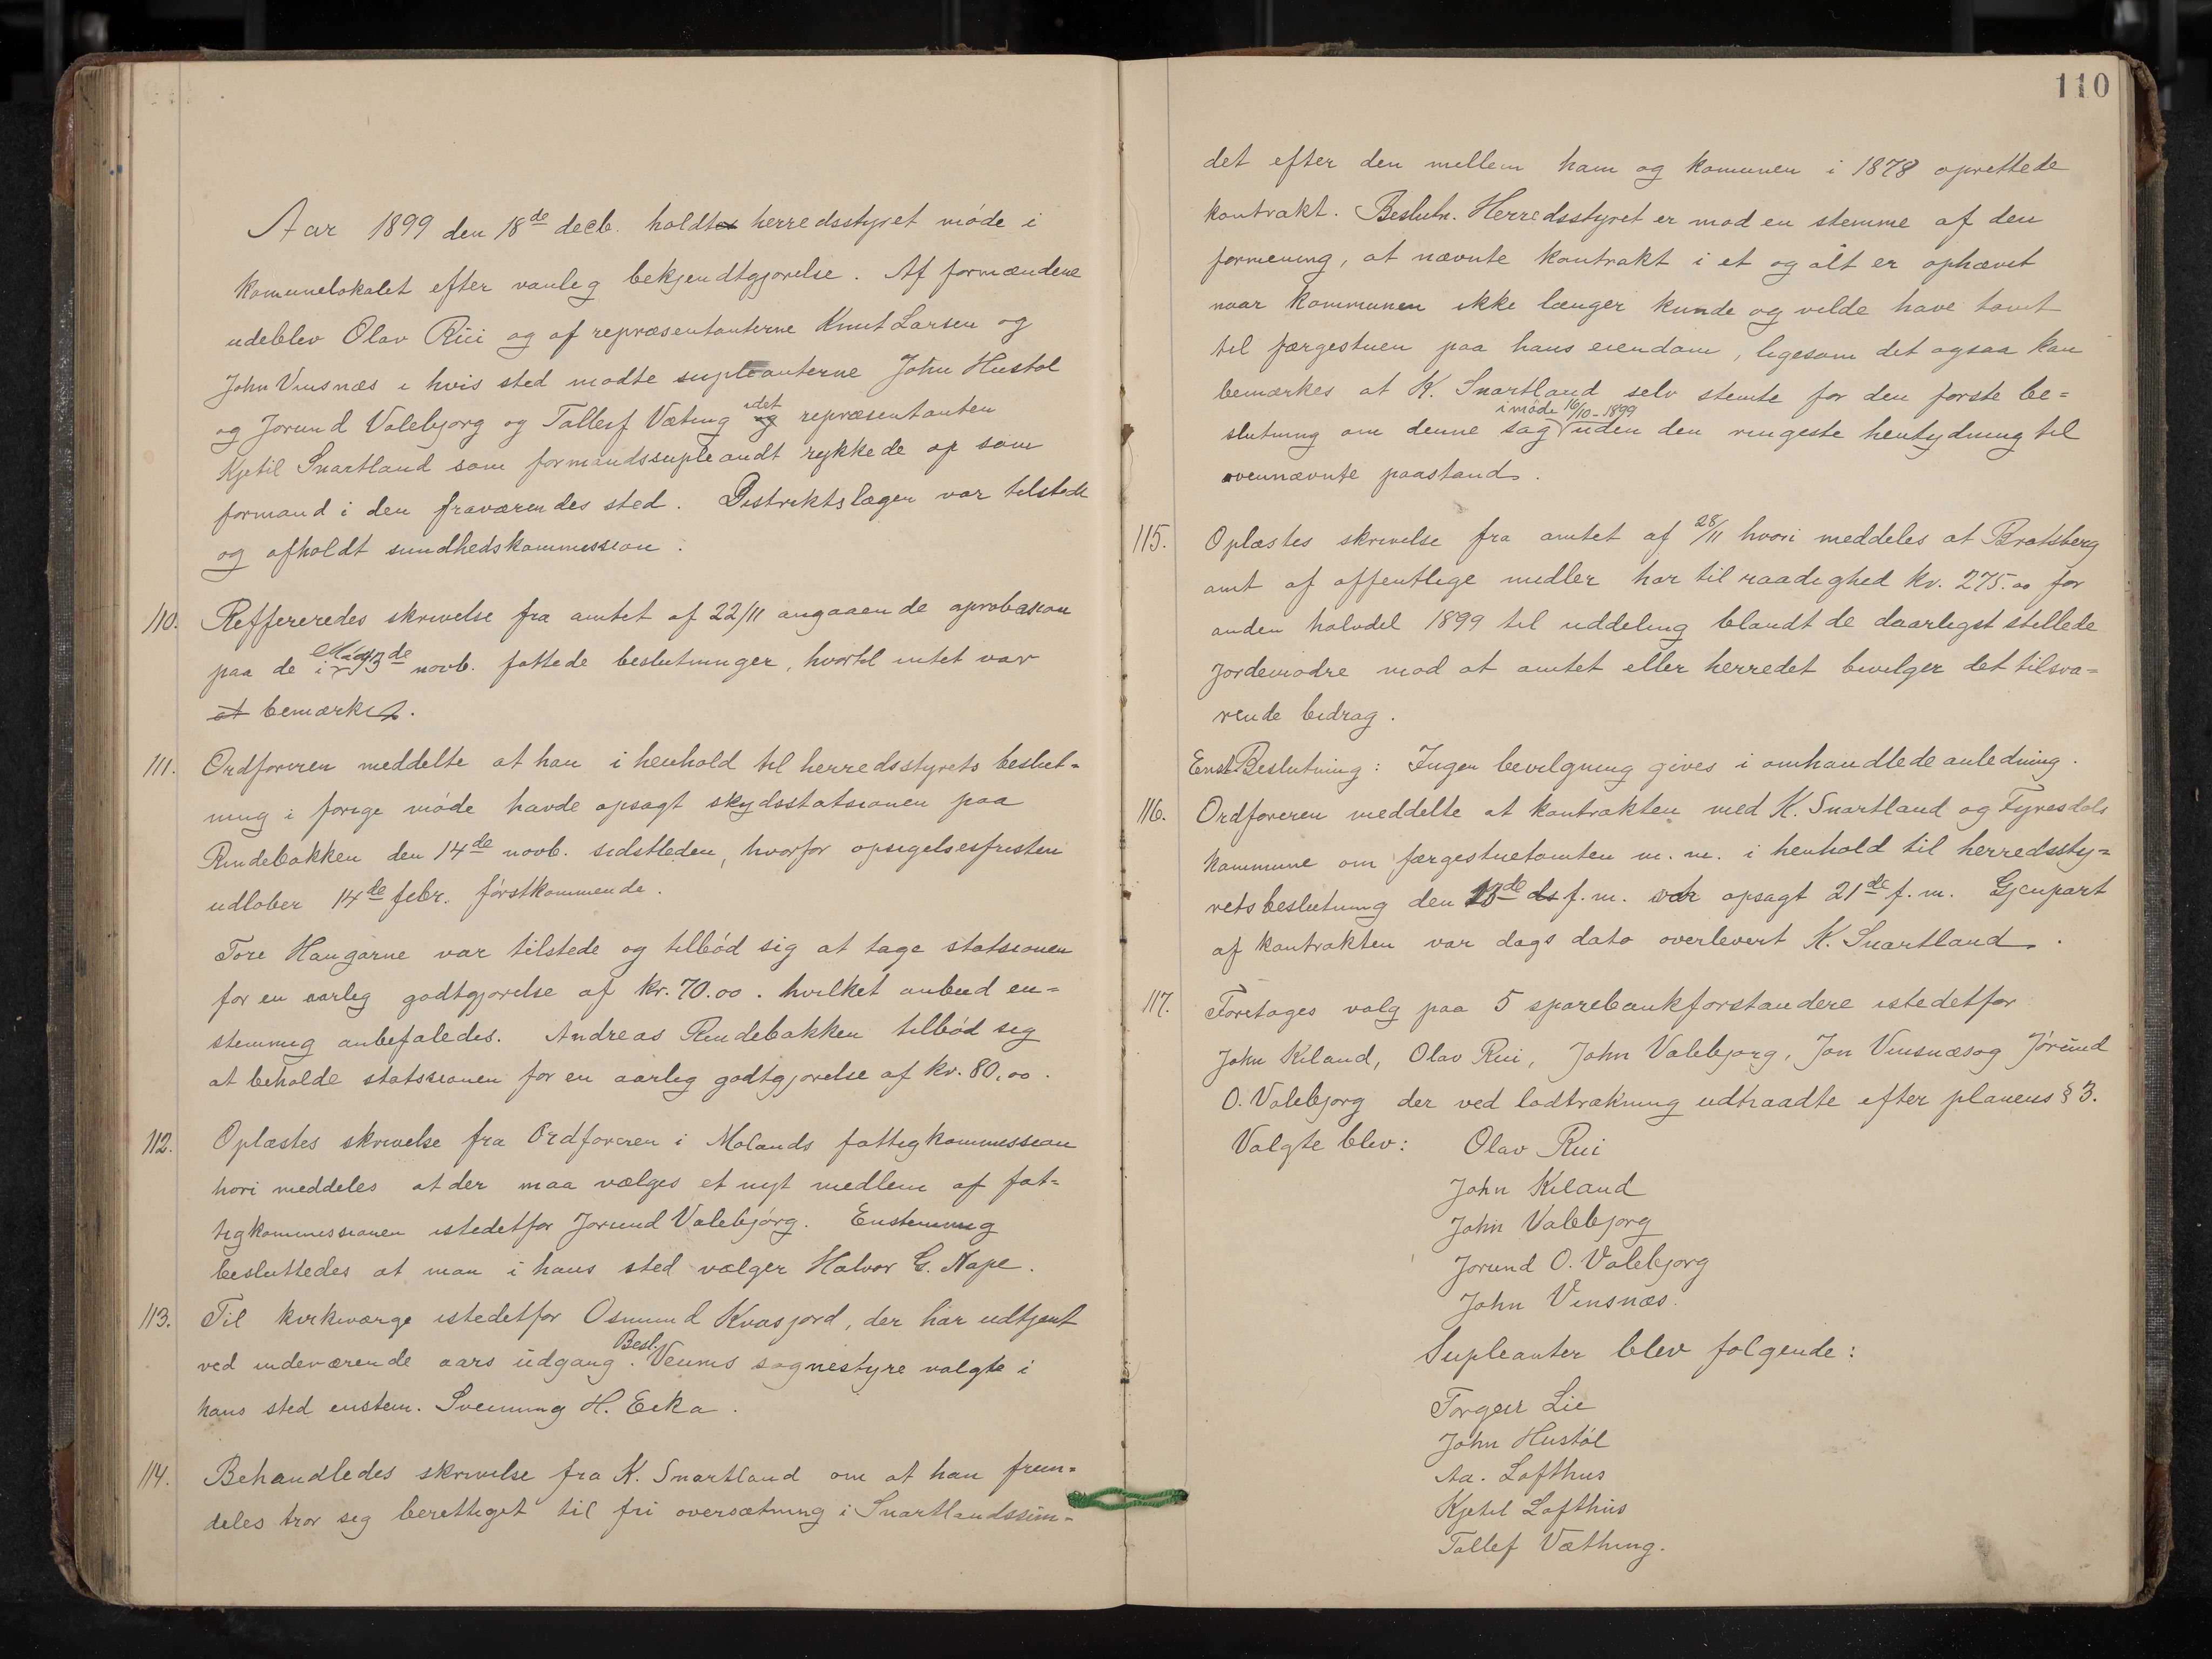 Aar 1899 den 18de decb. holdt herredsstyret møde i
komunelokalet efter vanleg bekjendtgjørelse. Af formændene
udeblev Olav Rui og af repræsentanterne Knut Larsen og
John Vinsnæs i hvis sted mødte supleanterne John Hustøl
og Jørund Valebjørg og Tallerf Væting idet repræsentanten
Kjetil Snartland som formandssupleandt rykkede op som
formand i den fraværendes sted. Distriktslægen var tilstede
og afholdt sundhedskommission.
110. Reffereredes skrivelse fra amtet af 22/11 angaaende aprobasion
paa de i 13de novb. fattede beslutninger, hvortil intet var
at bemærke.
111. Ordføreren meddelte at han i henhold til herredsstyrets beslut-
ning i forige møde havde opsagt skydsstatsionen paa
Rindebakken den 14de novb. sidstleden, hvorfor opsigelsesfristen
udløber 14de febr. førstkommende.
Tore Haugarne var tilstede og tilbød sig at tage statsionen
for en aarleg godtgjørelse af kr. 70.00. hvilket anbud en-
stemmig anbefaledes. Andreas Rindebakken tilbød seg
at beholde statssionen for en aarleg godtgjørelse af kr. 80,00.
112. Oplæstes skrivelse fra Ordføreren i Molands fattigkommission
hvori meddeles at der maa vælges et nyt medlem af fat-
tigkommissionen istedetfor Jørund Valebjørg. Enstemmig
besluttedes at man i hans sted vælger Halvor G. Nape.
113. Til kirkeværge istedetfor Osmund Kvasjord, der har udtjent
ved indeværende aars udgang. Besl. Veums sognestyre valgte i
hans sted enstem. Sveinung H. Eeka.
114. Behandledes skrivelse fra K. Snartland om at han frem-
deles tror seg berettiget til fri oversætning i Snartlandssun-
110
det efter den mellem ham og komunen i 1878 oprettede
kontrakt. Beslutn. Herredsstyret er mod en stemme af den
formening, at nævnte kontrakt i et og alt er ophævet
naar kommunen ikke længer kunde og vilde have tomt
til færgestuen paa hans eiendom, ligesom det ogsaa kan
bemærkes at K. Snartland selv stemte for den første be-
slutning om denne sag i møde 16/10-1899 uden den ringeste hentydning til
ovennævnte paastand.
115. Oplæstes skrivelse fra amtet af 28/11 hvori meddeles at Bratsberg
amt af offentlege midler har til raadighed kr. 275.00 for
anden halvdel 1899 til uddeling blandt de daarligst stillede
Jordemødre mod at amtet eller herredet bevilger det tilsva-
rende bidrag.
Enst. Beslutning: Ingen bevilgning gives i omhandlede anledning.
116. Ordføreren meddelte at kontrakten med K. Snartland og Fyresdals
kommune om færgestuetomten m. m. i henhold til herredssty-
rets beslutning den 13de f. m. var opsagt 21de f. m. Gjenpart
af kontrakten var dags dato overlevert K. Snartland.
117. Foretages valg paa 5 sparebankforstandere istedetfor
John Kiland, Olav Rui, John Valebjørg, Jon Vinsnæs og Jørund
O. Valebjørg der ved lodtrækning udtraadte efter planens § 3.
Valgte blev: Olav Rui
John Kiland
John Valebjørg
Jørund O. Valebjørg
John Vinsnæs.
Supleanter blev følgende:
Torgeir Lie
John Hustøl
Aa. Lofthus
Kjetil Lofthus
Tallef Væthing.